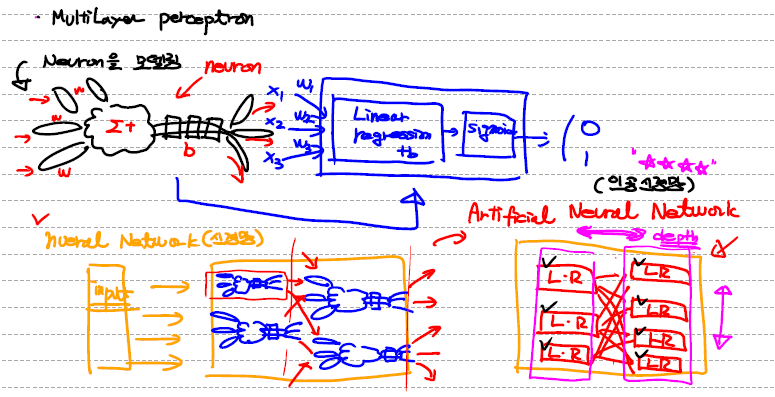 · Multilayer perceptron
Neuron을 모델링
neuron
w
w
w
w
Σ+
b
x1 w1
x2 w2
x3 w3
Linear
regression
+b
sigmoid
0
1
"☆☆☆☆"
(인공신경망)
Artificial Neural Network
nueral Network (신경망)
depth
input
L·R
L·R
L·R
L·R
L·R
L·R
L·R